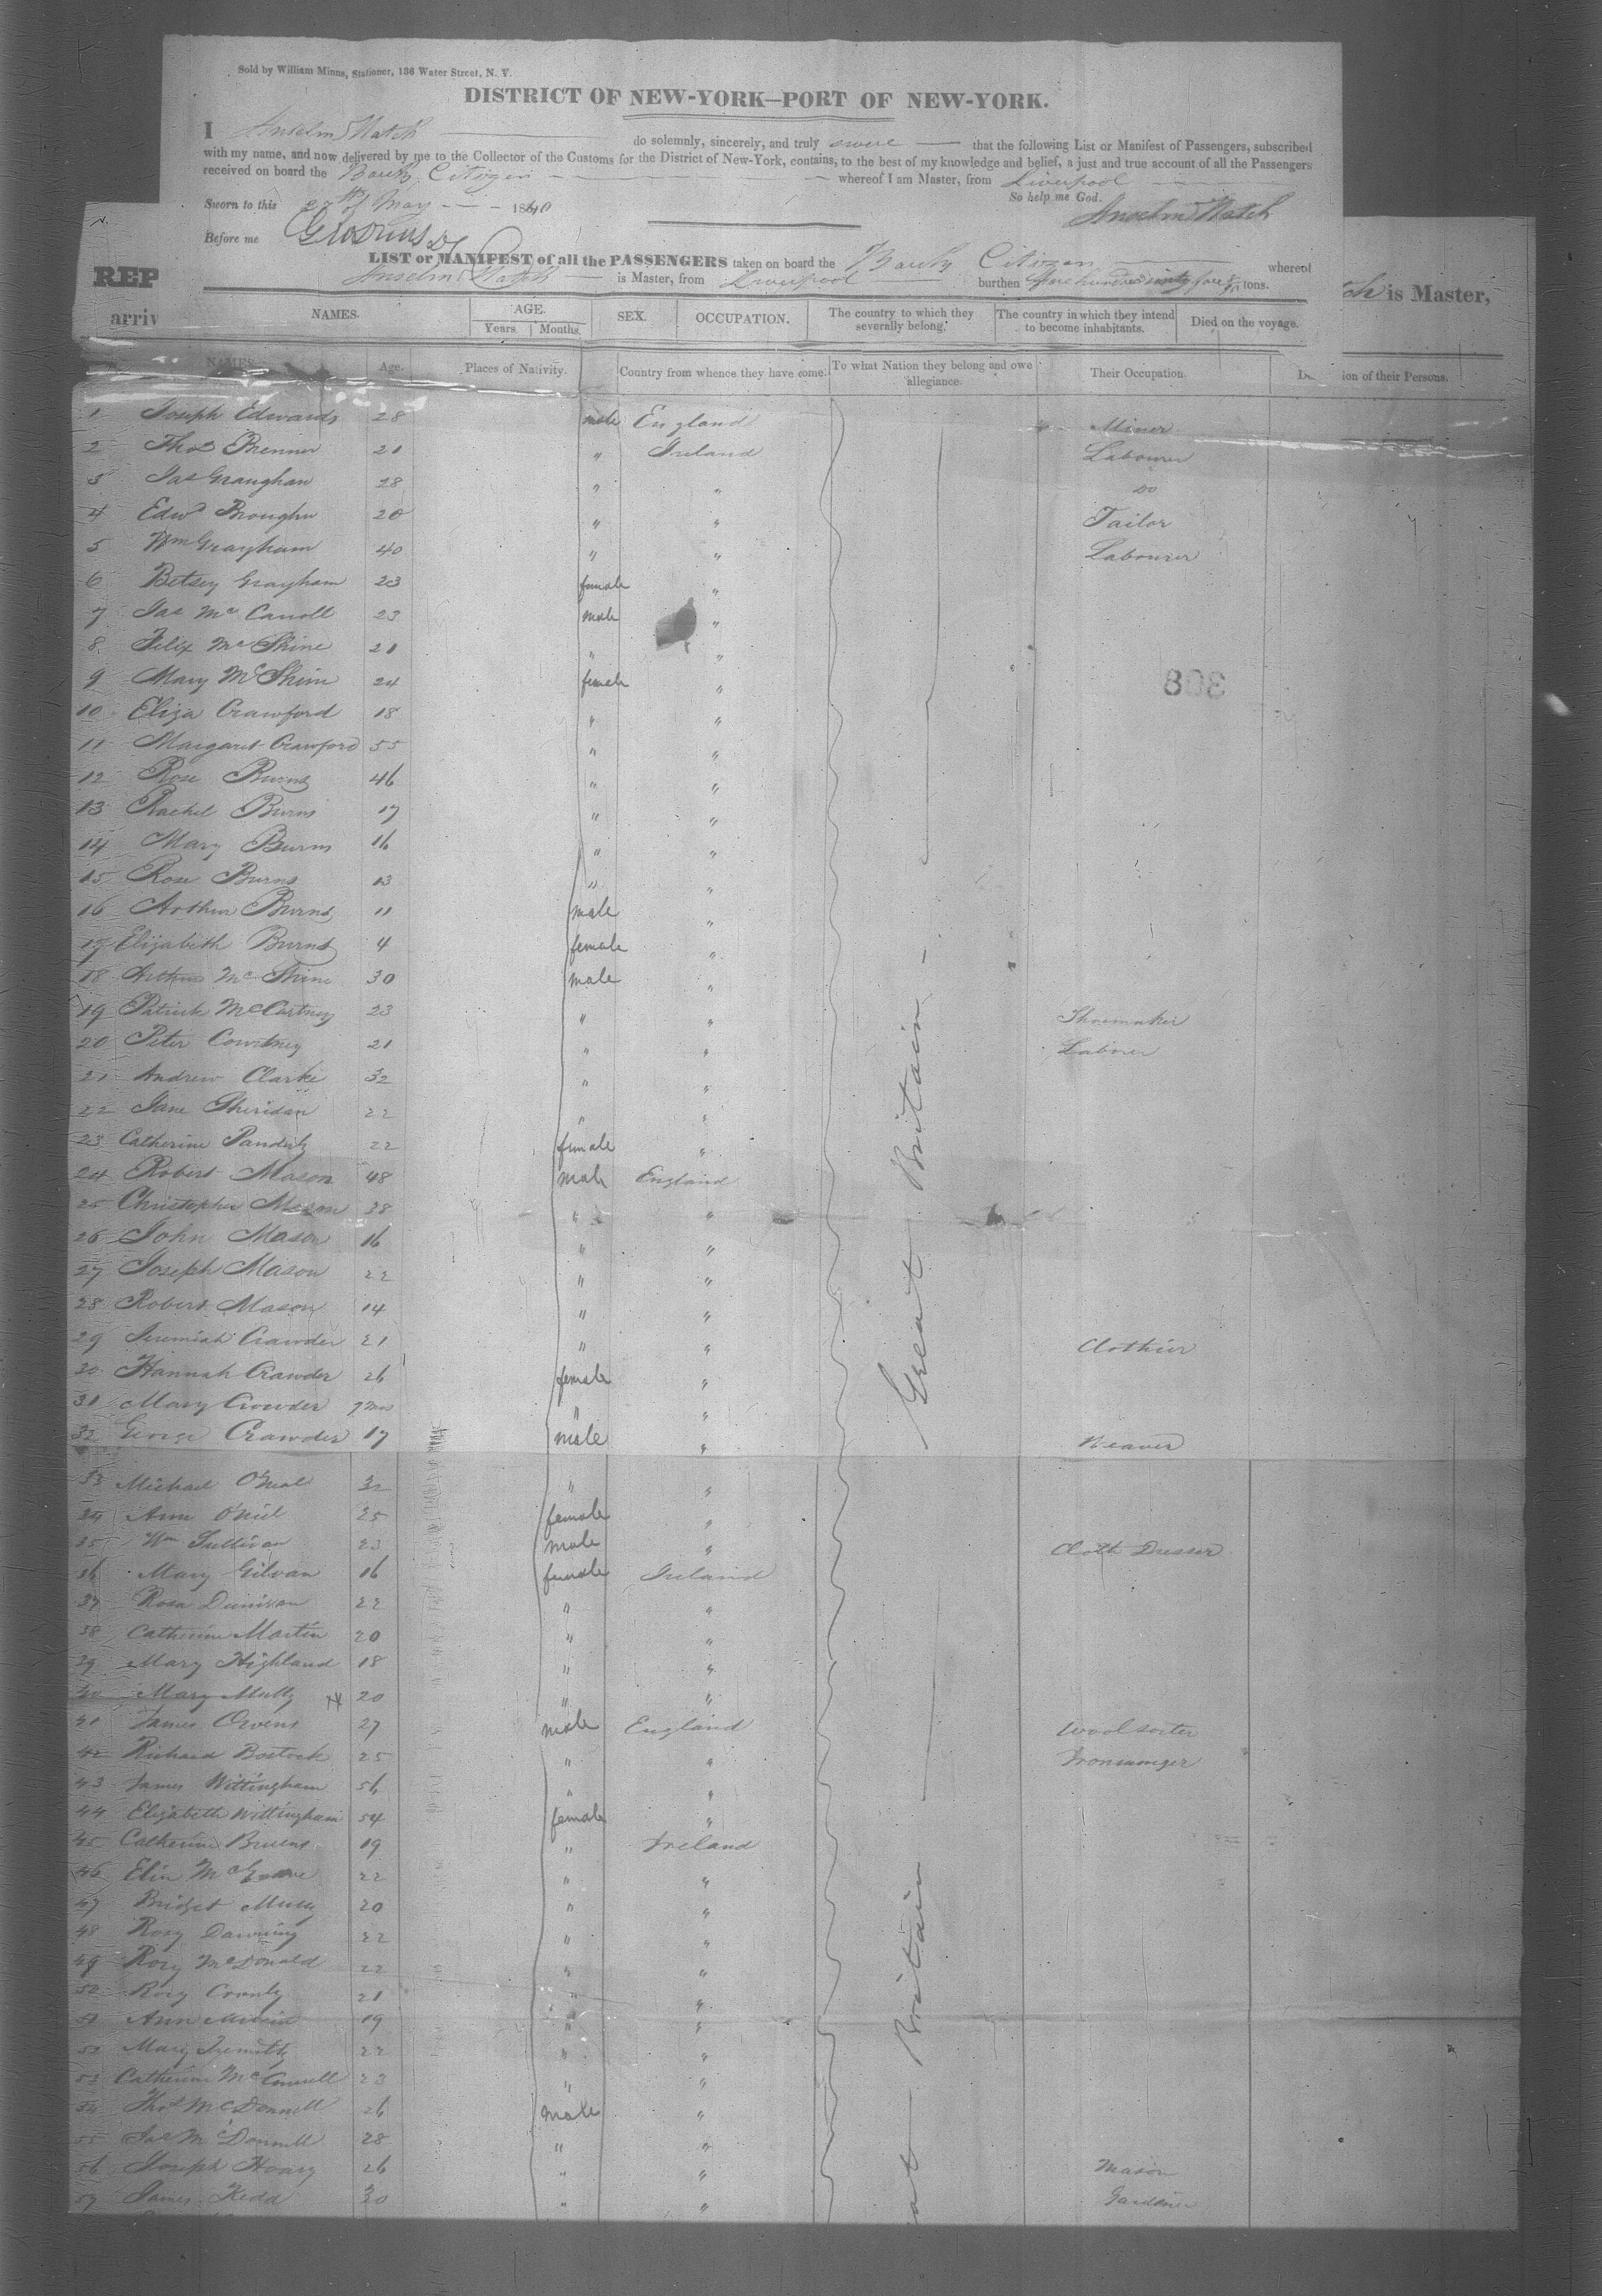 Sold by William Minns, Stationer, 136 Water Street, N. Y.
DISTRICT OF NEW-YORK—PORT OF NEW-YORK.
I Anselm Hatch do solemnly, sincerely, and truly swear that the following List or Manifest of Passengers, subscribed
with my name, and now delivered by me to the Collector of the Customs for the District of New-York, contains, to the best of my knowledge and belief, a just and true account of all the Passengers
received on board the Bark Citizen whereof I am Master, from Liverpool
Sworn to this 27th of May 1840 So help me God.
Anselm Hatch
Before me
LIST or MANIFEST of all the PASSENGERS taken on board the Bark Citizen whereof
Anselm Hatch is Master, from Liverpool burthen tons.
REP is Master,
arriv
NAMES. AGE. SEX. OCCUPATION. The country to which they severally belong. The country in which they intend to become inhabitants. Died on the voyage.
Years. Months.
NAMES Age. Places of Nativity. Country from whence they have come. To what Nation they belong and owe allegiance. Their Occupation. ion of their Persons.
1 Joseph Edwards 28 male England Miner
2 Thos Brenner 21 " Ireland Labourer
3 Jas Graughan 28 " " Do
4 Edwd Broughn 20 " " Tailor
5 Wm Grayham 40 " " Labourer
6 Betsey Grayham 23 female "
7 Jas McCarroll 23 male "
8 Felix McShine 21 " "
9 Mary McShine 24 female "
308
10 Eliza Crawford 18 " "
11 Margaret Crawford 55 " "
12 Rose Burns 46 " "
13 Rachel Burns 17 " "
14 Mary Burns 16 " "
15 Rose Burns 13 " "
16 Arthur Burns 11 male "
17 Elizabeth Burns 4 female "
18 Arthur McShine 30 male "
19 Patrick McCartney 23 " " Shoemaker
20 Peter Courtney 21 " " Labourer
21 Andrew Clarke 32 " "
22 Jane Sheridan 22 " "
23 Catherine 22 female "
24 Robert Mason 48 male England
25 Christopher Mason 38 " "
Great Britain
26 John Mason 16 " "
27 Joseph Mason 22 " "
28 Robert Mason 14 " "
29 Jeremiah Crawder 21 " " Clothier
30 Hannah Crawder 26 female "
31 Mary Crowder 7 mos " "
32 George Crawder 17 male " Weaver
33 Michael O'Neal 32 " "
34 Ann O'Niel 25 female "
35 Wm Sullivan 23 male " Cloth Dresser
36 Mary Gilvan 16 female Ireland
37 Rosa Dunivan 22 " "
38 Catherine Martin 20 " "
39 Mary Highland 18 " "
40 Mary Multy 20 " "
41 James Owens 27 male England Wool sorter
42 Richard Bostock 25 " " Ironmonger
43 James Wittingham 56 " "
44 Elizabeth Wittingham 54 female "
45 Catherine 19 " Ireland
46 Elin 22 " "
47 Bridget 20 " "
48 Rosy Dawning 22 " "
49 Rosy McDonald 22 " "
50 Rosy 21 " "
51 Ann 19 " "
52 Mary 22 " "
53 Catherine 23 " "
54 Thos McDonnell 26 male "
Great Britain
55 Jas McDonnell 28 " "
56 Joseph 26 " " Mason
57 James Kedd 30 " " Gardener